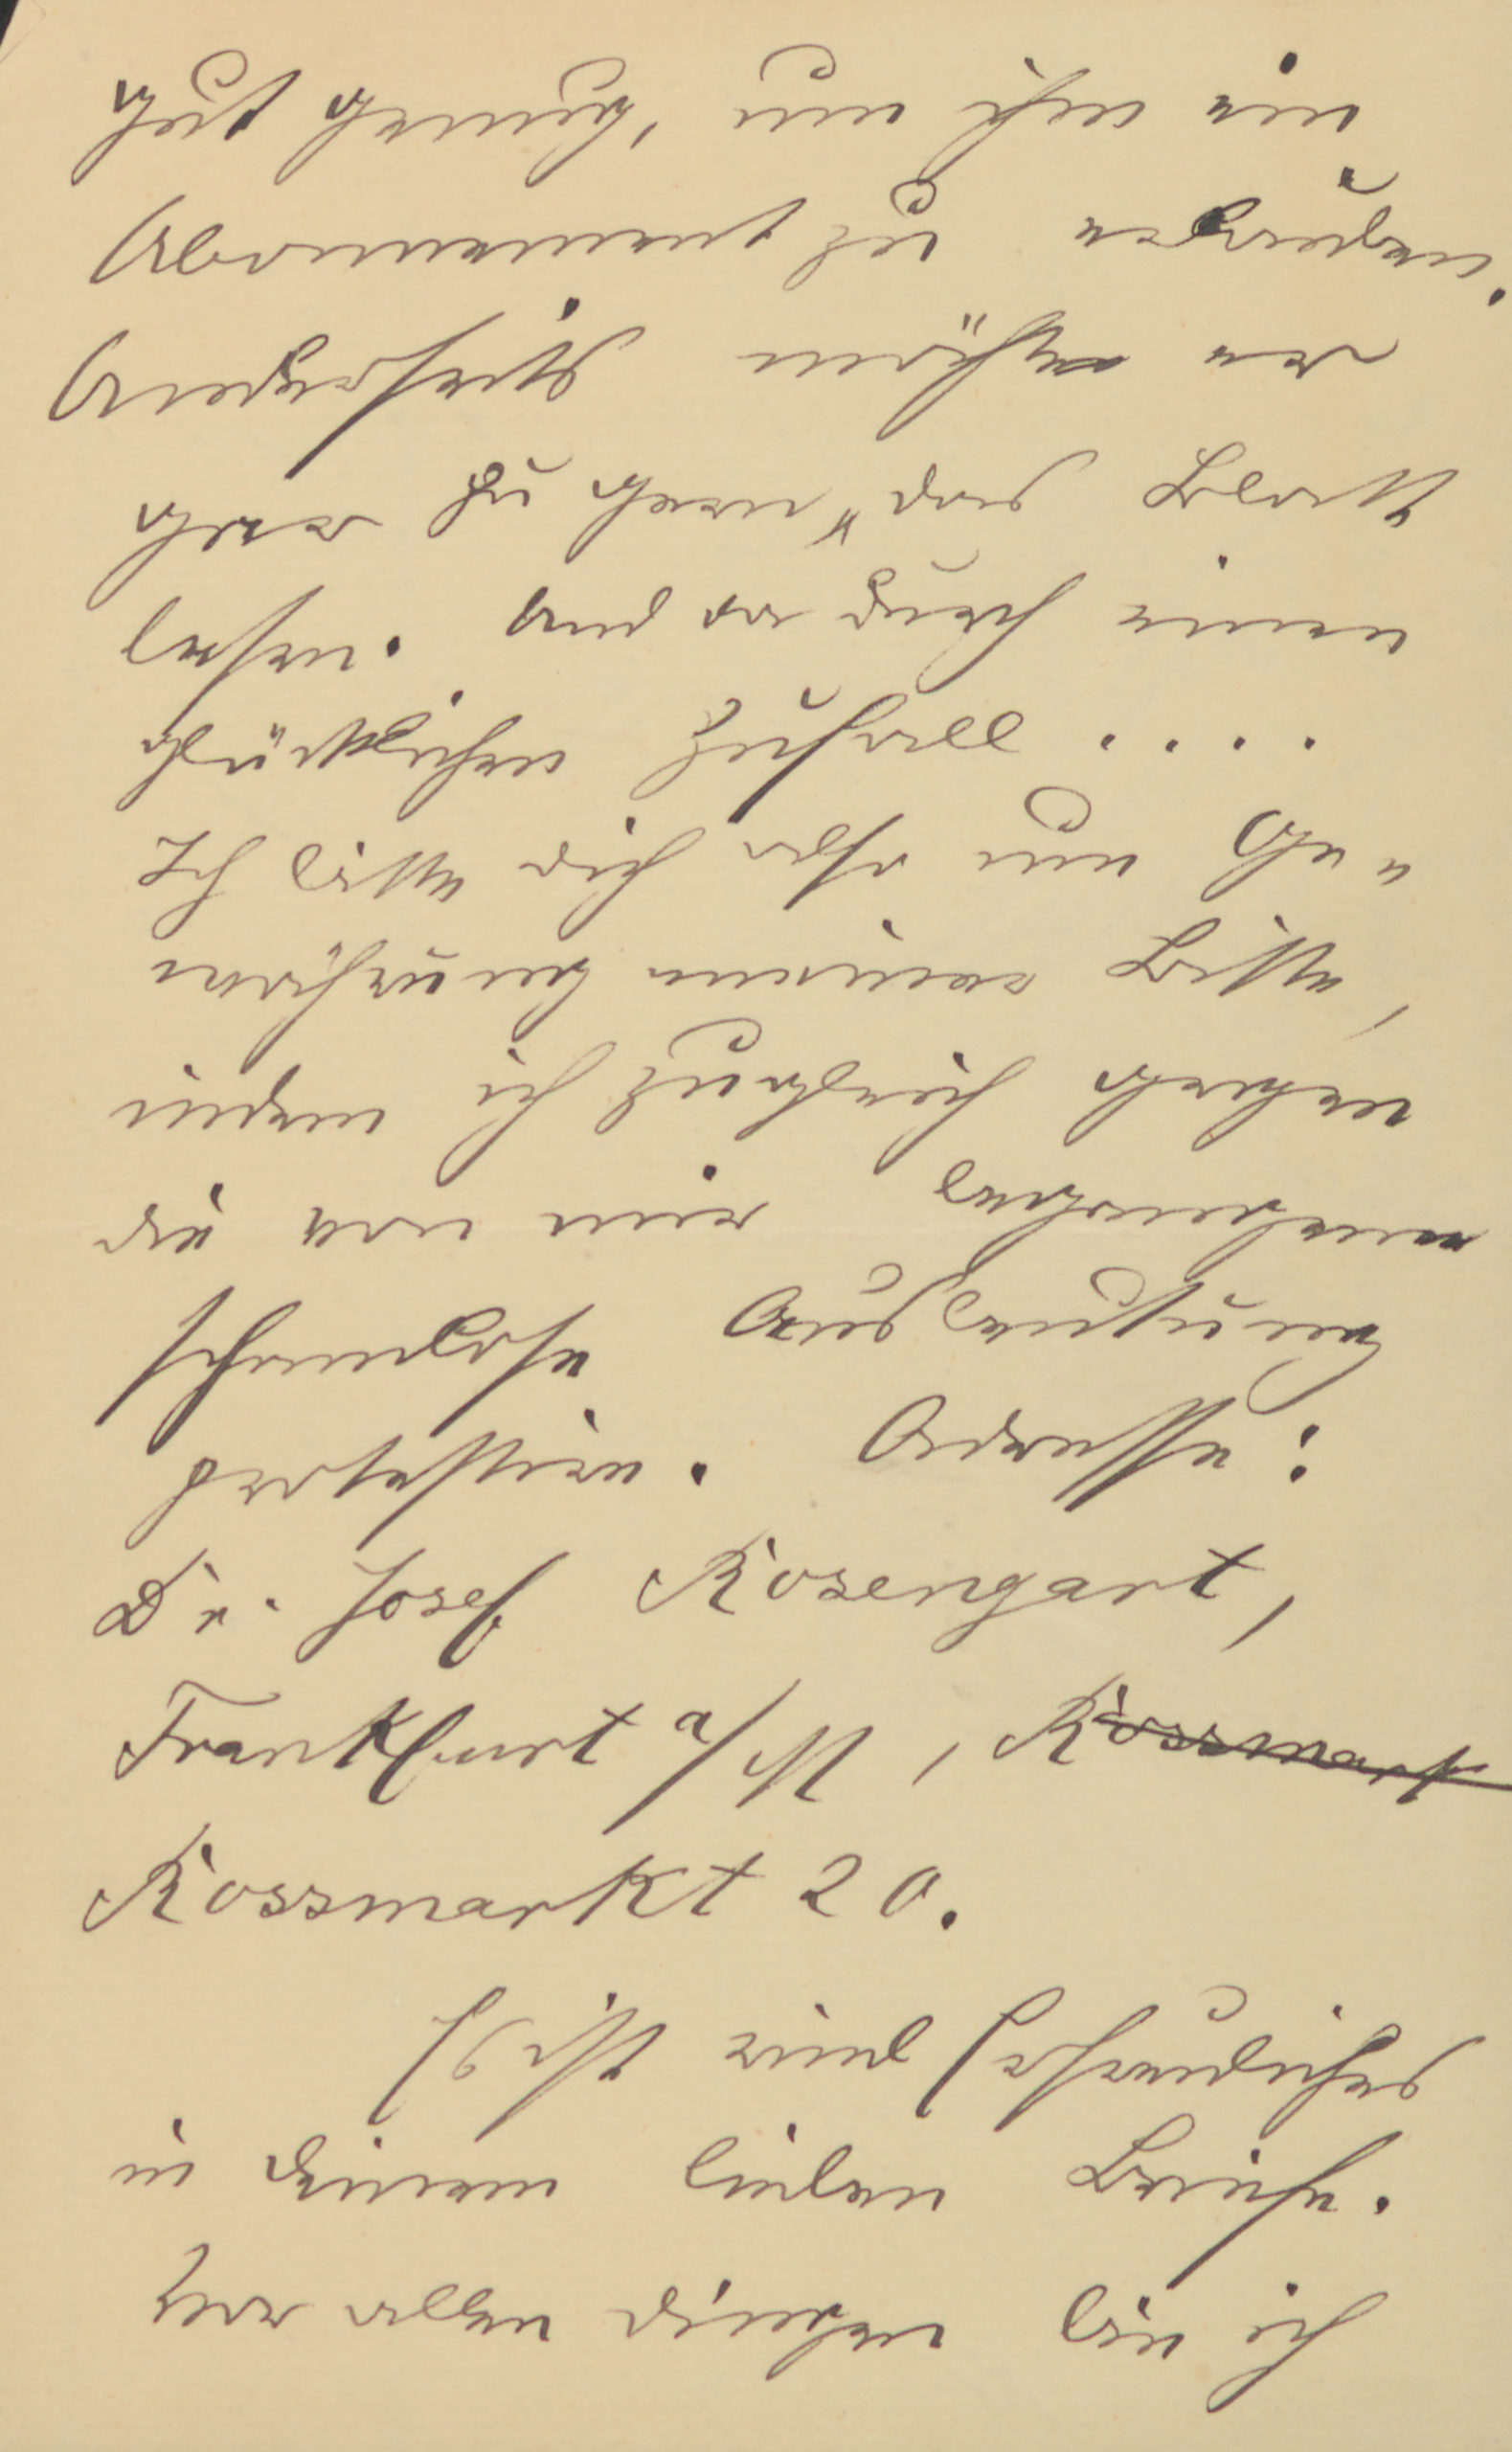 gut genug, um ihm ein
Abonnement zu erlauben.
Anderseits möchte er
gar zu gern „das Blatt
lesen. Und da durch einen
glücklichen Zufall . . . .
Ich bitte dich also um Ge-
währung meiner Bitte,
indem ich zugleich gegen
die von mir begangene
schamlose Ausbeutung
protestire. Adresse:
Dr. Josef Rosengart,
Frankfurt a/M, Rossmark
Rossmarkt 20.
Es ist viel Erfreuliches
in deinem lieben Briefe.
Vor allen Dingen bin ich